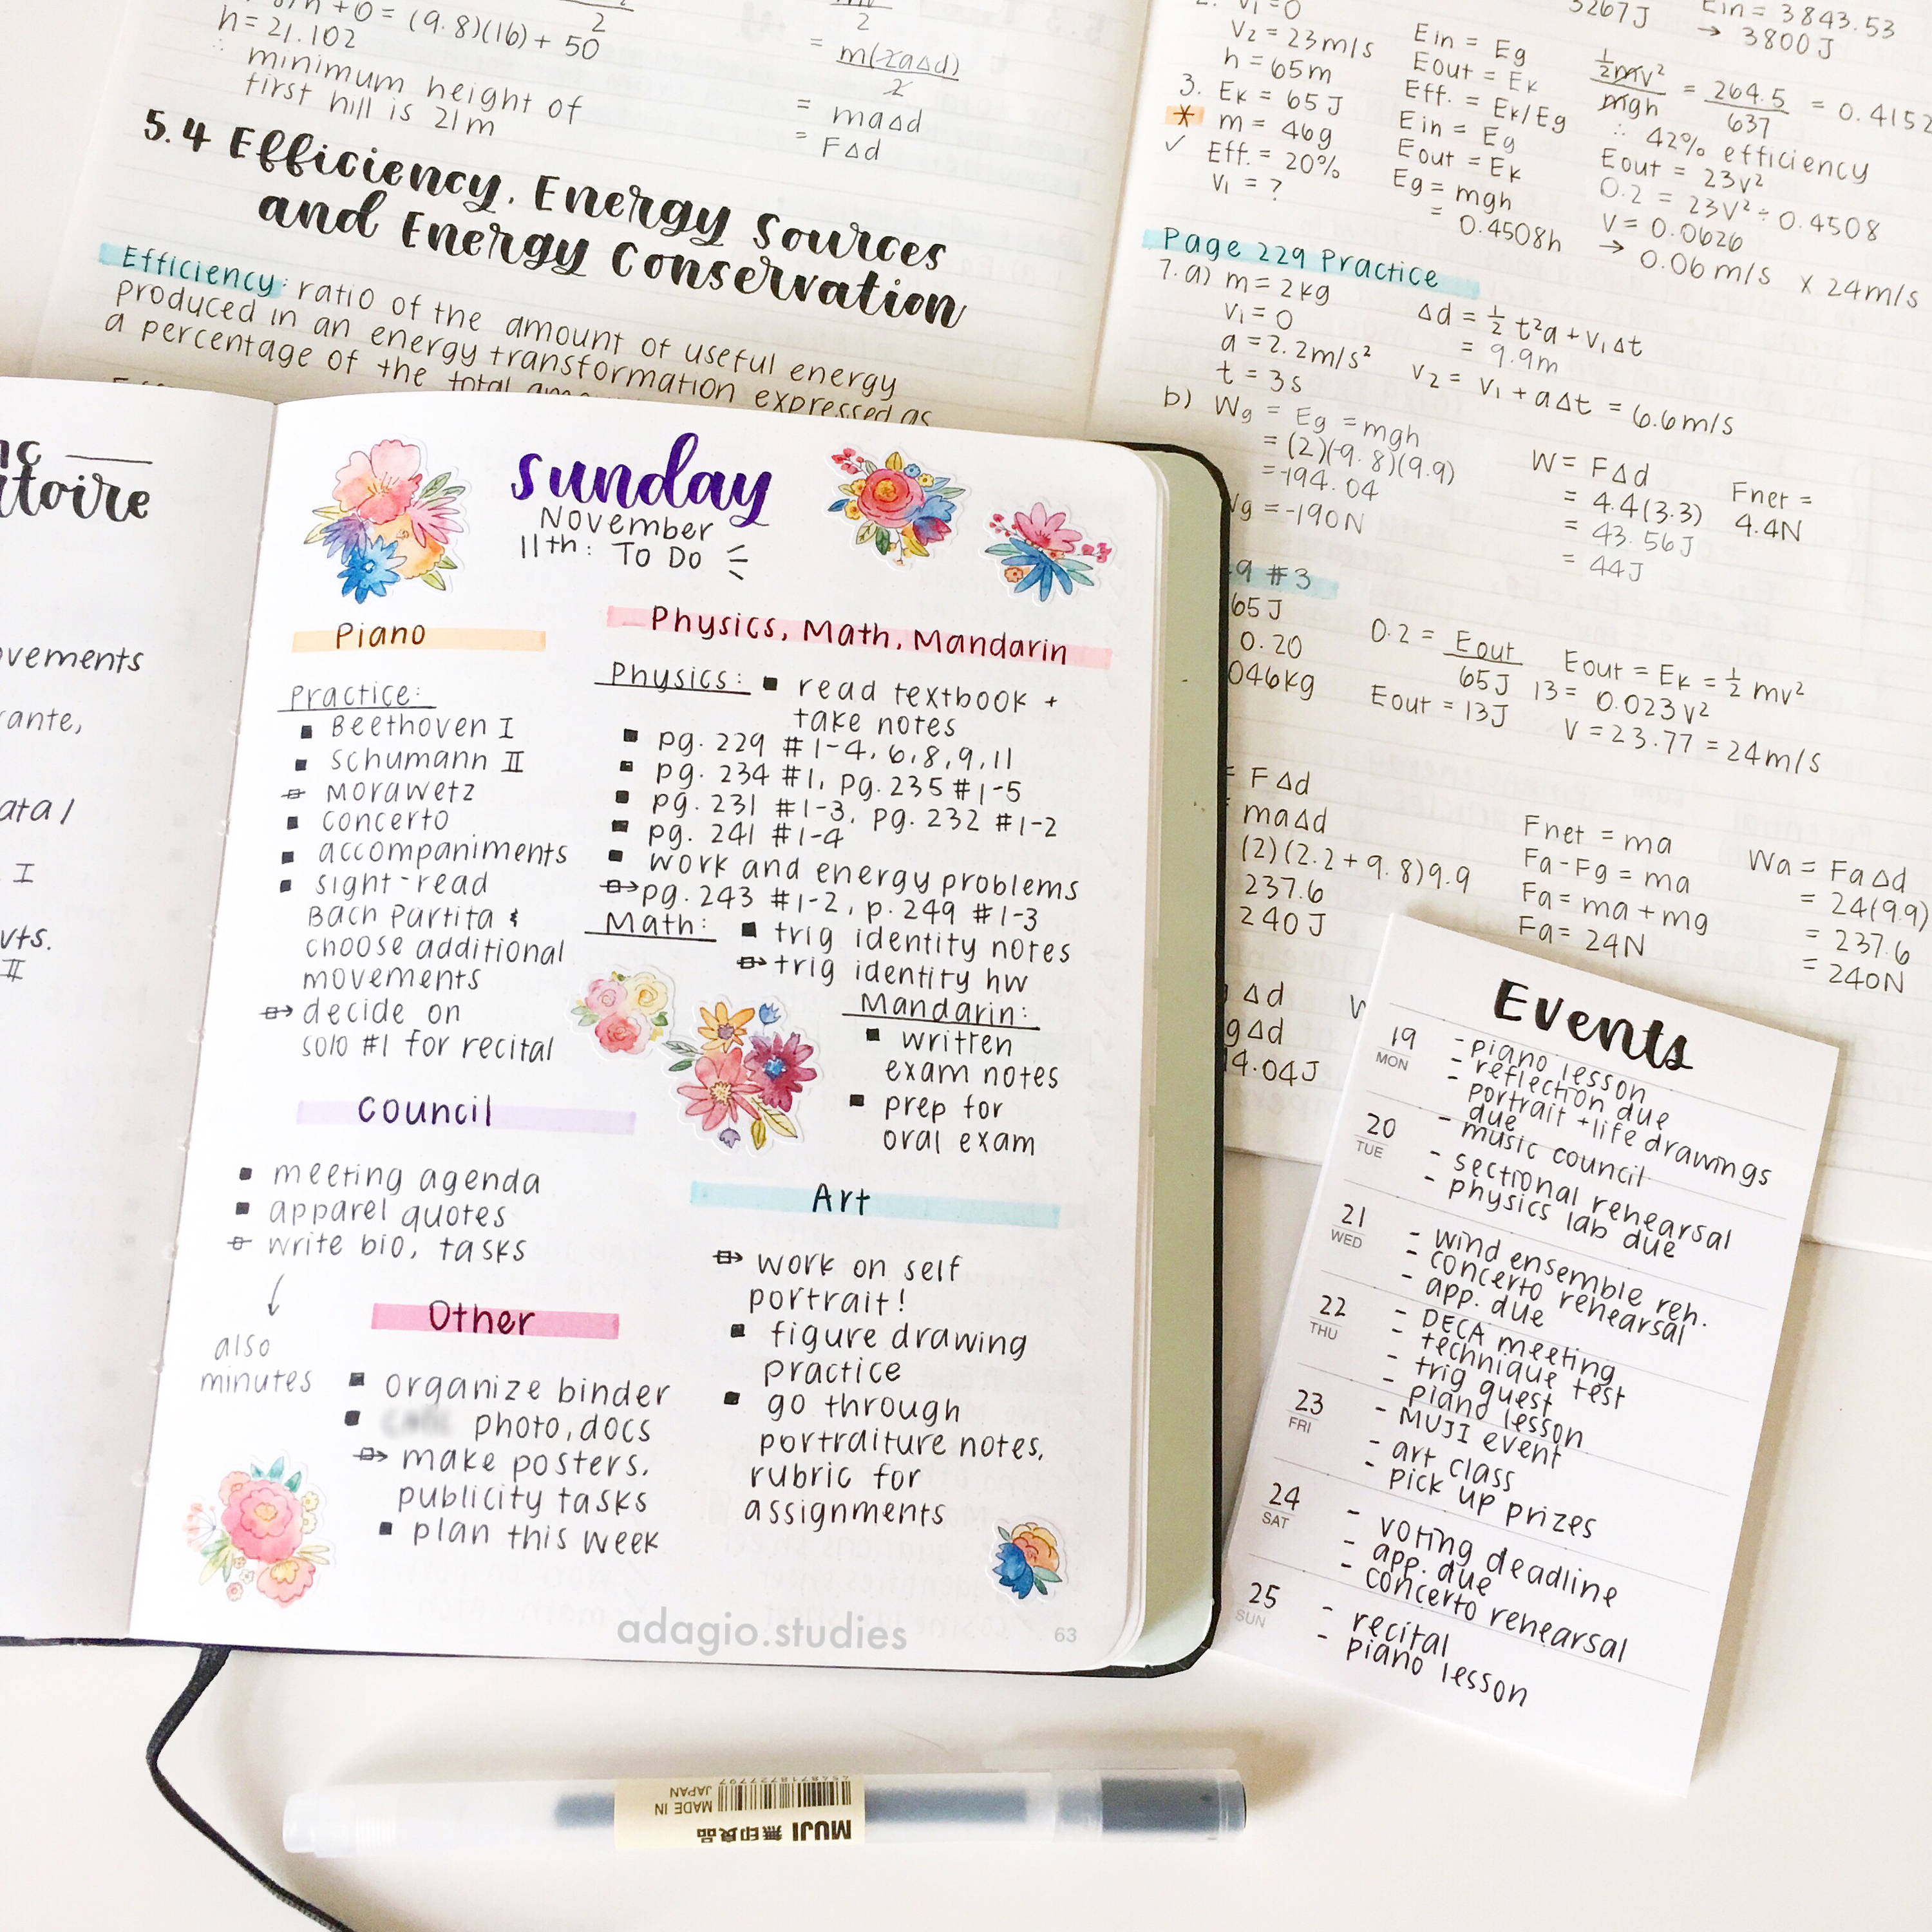 h = 21.102
= (9.8)(16) + 50
2
∴ minimum height of
first hill is 21m
2
= m(2aΔd)
2
= maΔd
= FΔd
5.4 Efficiency, Energy Sources
and Energy Conservation
Efficiency: ratio of the amount of useful energy
produced in an energy transformation expressed as
a percentage of the total
V1 = 0
V2 = 23m/s
h = 65m
3. Ek = 65J
* m = 46g
✓ Eff. = 20%
V1 = ?
Ein = Eg
Eout = Ek
Eff. = Ek/Eg
Ein = Eg
Eout = Ek
Eg = mgh
= 0.4508h
3267J
Ein = 3843.53
→ 3800J
½mv² = 264.5 = 0.4152
mgh 637
∴ 42% efficiency
Eout = 23v²
0.2 = 23v² ÷ 0.4508
v = 0.0626
→ 0.06m/s x 24m/s
Page 229 Practice
7. a) m = 2kg
V1 = 0
a = 2.2m/s²
t = 3s
Δd = ½ t²a + V1Δt
= 9.9m
V2 = V1 + aΔt = 6.6m/s
b) Wg = Eg = mgh
= (2)(-9.8)(9.9)
= -194.04
Wg = -190N
W = FΔd
= 4.4(3.3)
= 43.56J
= 44J
Fnet =
4.4N
#3
65J
0.20
046kg
0.2 = Eout
65J
Eout = 13J
Eout = Ek = ½ mv²
13 = 0.023v²
v = 23.77 = 24m/s
= FΔd
maΔd
(2)(2.2 + 9.8)9.9
237.6
240J
Fnet = ma
Fa - Fg = ma
Fa = ma + mg
Fa = 24N
Wa = FaΔd
= 24(9.9)
= 237.6
= 240N
Δd
gΔd
4.04J
W
itoire
ovements
rante,
I
vts.
II
sunday
November
11th: To Do
Piano
Practice:
Beethoven I
Schumann II
Morawetz
concerto
accompaniments
sight-read
Bach Partita &
choose additional
movements
decide on
solo #1 for recital
Physics, Math, Mandarin
Physics: read textbook +
take notes
pg. 229 #1-4, 6, 8, 9, 11
pg. 234 #1, pg. 235 #1-5
pg. 231 #1-3, pg. 232 #1-2
pg. 241 #1-4
work and energy problems
pg. 243 #1-2, p. 249 #1-3
Math: trig identity notes
trig identity hw
Mandarin:
written
exam notes
prep for
oral exam
Council
meeting agenda
apparel quotes
write bio, tasks
↓
also
minutes
Art
work on self
portrait!
figure drawing
practice
go through
portraiture notes,
rubric for
assignments
Other
organize binder
photo, docs
make posters,
publicity tasks
plan this week
adagio.studies
63
Events
19 MON
- piano lesson
- reflection due
- portrait + life drawings
due
20 TUE
- music council
- sectional rehearsal
- physics lab due
21 WED
- wind ensemble reh.
- concerto rehearsal
- app. due
22 THU
- DECA meeting
- technique test
- trig quest
- piano lesson
23 FRI
- MUJI event
- art class
- pick up prizes
24 SAT
- voting deadline
- app. due
- concerto rehearsal
25 SUN
- recital
- piano lesson
MUJI 無印良品
MADE IN
JAPAN
4548718727797